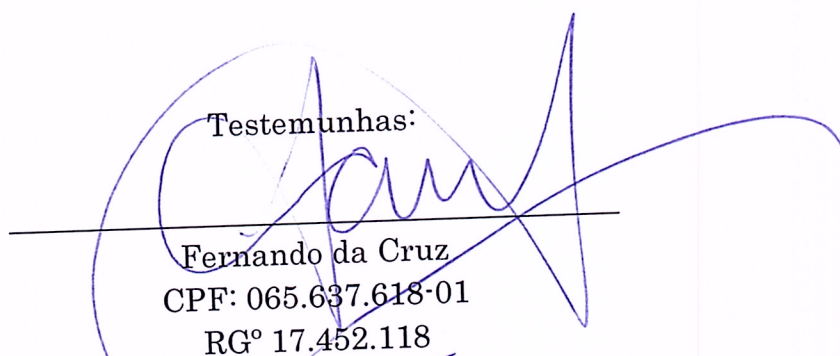 Testemunhas:
Fernando da Cruz
CPF: 065.637.618-01
RGº 17.452.118